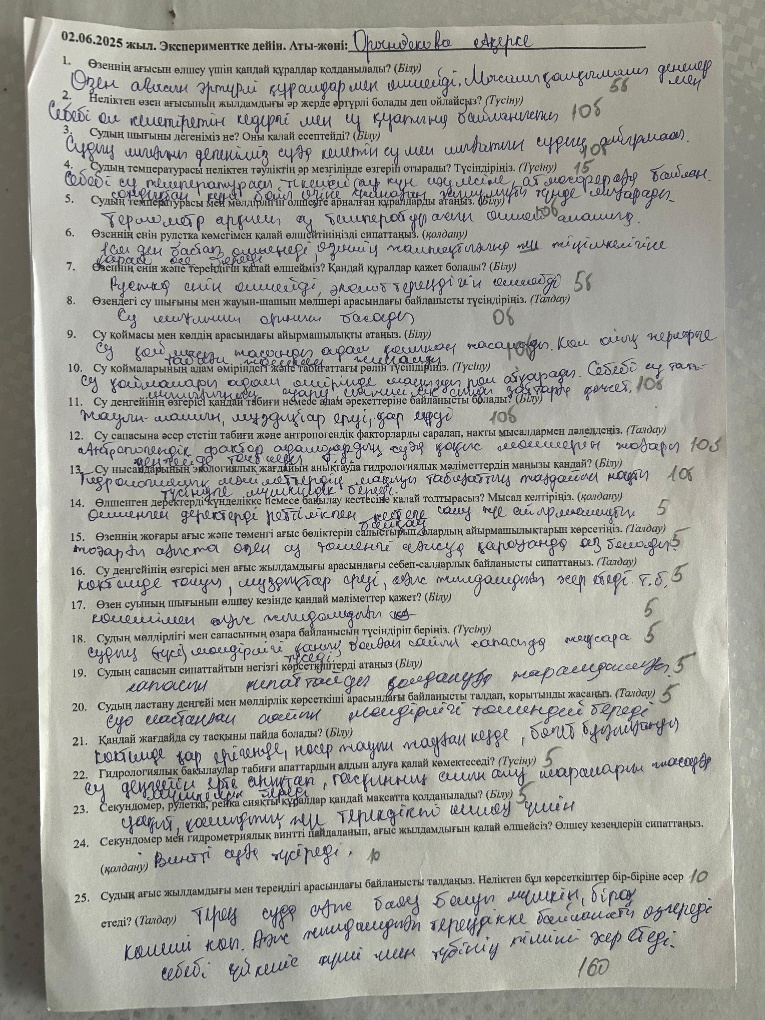 02.06.2025 жыл. Экспериментке дейін. Аты-жөні: Орындекова Ақерке
1. Өзеннің ағысын өлшеу үшін қандай құралдар қолданылады? (Білу)
Өзен ағысын әртүрлі құралдармен өлшейді. Мысалы қалқымалы денелер мен 5б
2. Неліктен өзен ағысының жылдамдығы әр жерде әртүрлі болады деп ойлайсыз? (Түсіну)
Себебі ол келетіретін кедергі мен су қуатына байланысты 10б
3. Судың шығыны дегеніміз не? Оны қалай есептейді? (Білу)
Судың шығыны дегеніміз суда келетін су мен шығатын судың айырмасы. 10б
4. Судың температурасы неліктен тәуліктің әр мезгілінде өзгеріп отырады? Түсіндіріңіз. (Түсіну) 15
Себебі су температурасы тікелей күн сәулесіне, атмосфераға байлан-
5. Судың температурасы мен мөлдірлігін өлшеуге арналған құралдарды атаңыз. (Білу)
Термометр арқылы су температурасын өлшей аламыз. 10б
6. Өзеннің енін рулетка көмегімен қалай өлшейтініңізді сипаттаңыз. (қолдану)
7. Өзеннің енін және тереңдігін қалай өлшейміз? Қандай құралдар қажет болады? (Білу)
Рулетка енін өлшейді, эхолот тереңдігін өлшейді 5б
8. Өзендегі су шығыны мен жауын-шашын мөлшері арасындағы байланысты түсіндіріңіз. (Талдау)
Су шығынын орнын басады 0б
9. Су қоймасы мен көлдің арасындағы айырмашылықты атаңыз. (Білу)
Су қоймасын жасанды адам қолымен жасайды. Көл ойық жерлерде
10. Су қоймаларының адам өміріндегі және табиғаттағы рөлін түсіндіріңіз. (Түсіну)
Су қоймалары адам өмірінде маңызды рөл атқарады. Себебі су тап-
10б
11. Су деңгейінің өзгерісі қандай табиғи немесе адам әрекеттеріне байланысты болады? (Білу)
Жауын-шашын, мұздықтар еруі, қар еруі 10б
12. Су сапасына әсер ететін табиғи және антропогендік факторларды саралап, нақты мысалдармен дәлелдеңіз. (Талдау)
Антропогендік фактор адамдардың суға қоқыс мөлшерін жоғары 10б
13. Су нысандарының экологиялық жағдайын анықтауда гидрологиялық мәліметтердің маңызы қандай? (Білу)
Гидрологиялық мәліметтердің маңызы табиғаттың жағдайын нақты 10б
түсінуге мүмкіндік береді.
14. Өлшенген деректерді күнделікке немесе бақылау кестесіне қалай толтырасыз? Мысал келтіріңіз. (қолдану)
Өлшенген деректерді ретілікпен кестеге салу және айырмашылығын байқау 5
15. Өзеннің жоғары ағыс және төменгі ағыс бөліктерін салыстырып, олардың айырмашылықтарын көрсетіңіз. (Талдау)
Жоғарғы ағыста өзен су төменгі ағысқа қарағанда аз болады. 5
16. Су деңгейінің өзгерісі мен ағыс жылдамдығы арасындағы себеп-салдарлық байланысты сипаттаңыз. (Талдау)
Көктемде тасуы, мұздықтар еруі, ағыс жылдамдығына әсер етеді т.б. 5
17. Өзен суының шығынын өлшеу кезінде қандай мәліметтер қажет? (Білу)
көлемімен ағыс жылдамдығы 5
18. Судың мөлдірлігі мен сапасының өзара байланысын түсіндіріп беріңіз. (Түсіну)
5
19. Судың сапасын сипаттайтын негізгі көрсеткіштерді атаңыз (Білу)
сапасын сипаттайды қолдануға жарамдылығы. 5
20. Судың ластану деңгейі мен мөлдірлік көрсеткіші арасындағы байланысты талдап, қорытынды жасаңыз. (Талдау)
Су ластанған сайын мөлдірлігі төмендей береді 5
21. Қандай жағдайда су тасқыны пайда болады? (Білу)
Көктемде қар ерігенде, нөсер жауын жауған кезде, бөгет бұзылғанда
22. Гидрологиялық бақылаулар табиғи апаттардың алдын алуға қалай көмектеседі? (Түсіну) 5
Су деңгейін ерте анықтап, тасқынның алдын алу шараларын жасауға
мүмкіндік береді
23. Секундомер, рулетка, рейка сияқты құралдар қандай мақсатта қолданылады? (Білу) 5
уақыт, қашықтық және тереңдікті өлшеу үшін
24. Секундомер мен гидрометриялық винтті пайдаланып, ағыс жылдамдығын қалай өлшейсіз? Өлшеу кезеңдерін сипаттаңыз.
(қолдану) Винтті суға түсіреді. 10
25. Судың ағыс жылдамдығы мен тереңдігі арасындағы байланысты талдаңыз. Неліктен бұл көрсеткіштер бір-біріне әсер 10
етеді? (Талдау) Терең суда ағыс баяу болуы мүмкін, бірақ
көлемі көп. Ағыс жылдамдығы тереңдікке байланысты өзгереді
себебі үйкеліс күші мен түбінің пішіні әсер етеді.
160